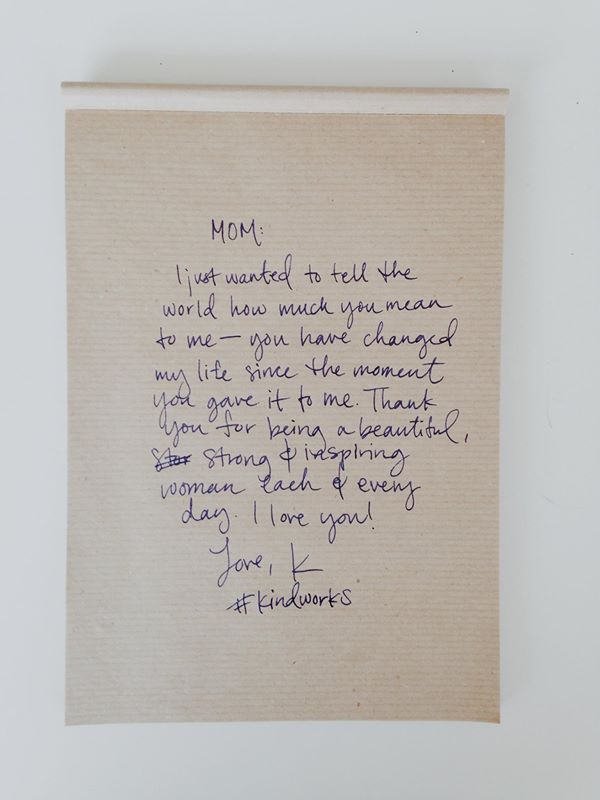 MOM:
I just wanted to tell the
world how much you mean
to me — you have changed
my life since the moment
you gave it to me. Thank
you for being a beautiful,
strong & inspiring
woman each & every
day. I love you!
Love, K
#kindworks